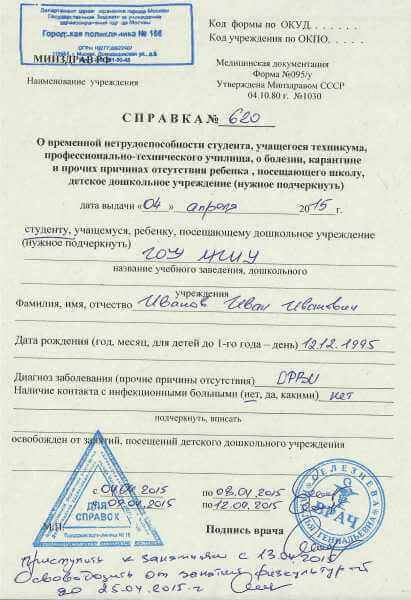 Департамент здравоохранения города Москвы
Городская поликлиника № 166
МИНЗДРАВ РФ
Наименование учреждения
Код формы по ОКУД. . . . . .
Код учреждения по ОКПО. . . . .
Медицинская документация
Форма №095/у
Утверждена Минздравом СССР
04.10.80 г. №1030
СПРАВКА № 620
О временной нетрудоспособности студента, учащегося техникума,
профессионально-технического училища, о болезни, карантине
и прочих причинах отсутствия ребенка , посещающего школу,
детское дошкольное учреждение (нужное подчеркнуть)
дата выдачи «04 » апреля 2015 г.
студенту, учащемуся, ребенку, посещающему дошкольное учреждение
(нужное подчеркнуть)
ГОУ
название учебного заведения, дошкольного
учреждения
Фамилия, имя, отчество Иванов Иван Иванович
Дата рождения (год, месяц, для детей до 1-го года – день) 12.12.1995
Диагноз заболевания (прочие причины отсутствия) ОРВИ
Наличие контакта с инфекционными больными (нет, да, какими) нет
подчеркнуть, вписать
освобожден от занятий, посещений детского дошкольного учреждения
с 04.04.2015 по 08.04.2015
по 12.04.2015
ДЛЯ
СПРАВОК
М.П.
Подпись врача
СЕЛЕЗНЕВА
ГЕННАДЬЕВНА
ВРАЧ
Приступить к занятиям с 13.04.2015
Освободить от занятий физкультурой
до 25.04.2015 г